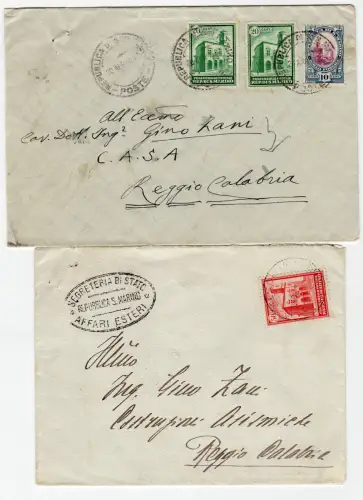 REPUBBLICA
POSTE
20
20
10
REP. DI S. MARINO
All'Ecc.mo
Cav. Dott. Ing.e Gino Zani
C.A.S.A
Reggio Calabria
SEGRETERIA DI STATO
REPUBBLICA S. MARINO
AFFARI ESTERI
Ill/mo
Ing. Gino Zani
Costruzioni Asismiche
Reggio Calabria